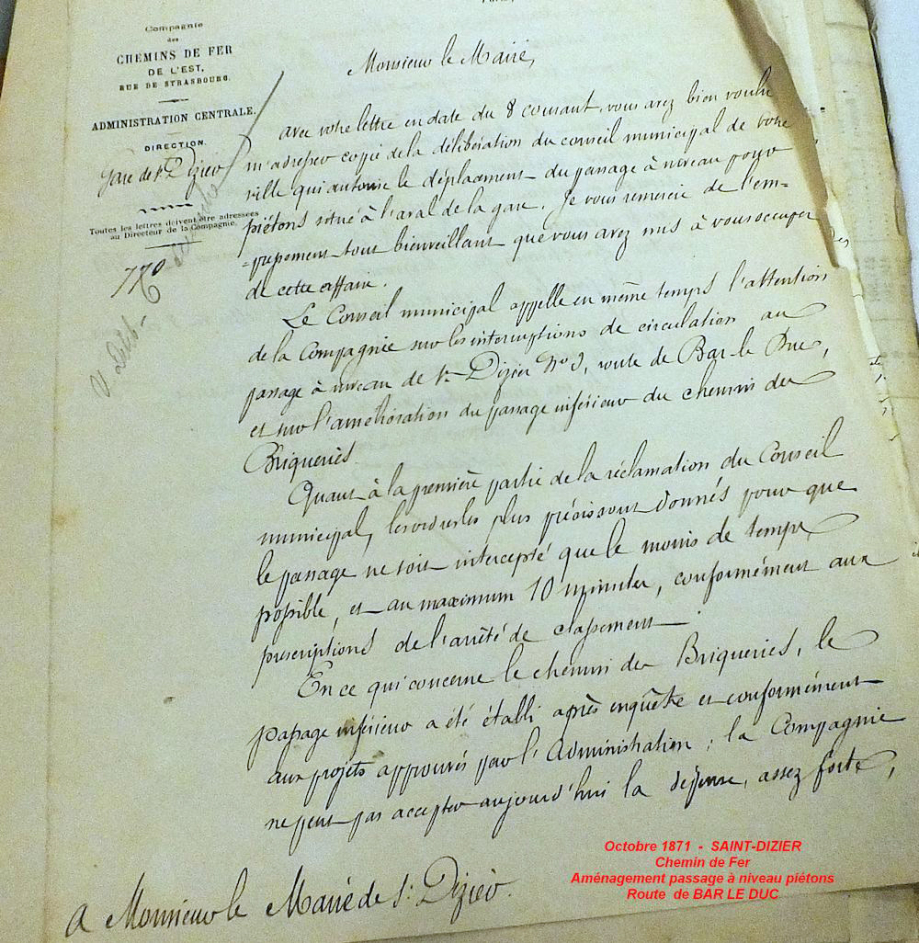 Compagnie
des
CHEMINS DE FER
DE L'EST,
RUE DE STRASBOURG.
ADMINISTRATION CENTRALE.
DIRECTION.
Gare de St Dizier
Toutes les lettres doivent être adressées
au Directeur de la Compagnie.
770
Monsieur le Maire,
Avec votre lettre en date du 8 courant, vous avez bien voulu
m'adresser copie de la délibération du conseil municipal de votre
ville qui autorise le déplacement du passage à niveau pour
piétons situé à l'aval de la gare. Je vous remercie de l'em-
-pressement tout bienveillant que vous avez mis à vous occuper
de cette affaire.
Le Conseil municipal appelle en même temps l'attention
de la Compagnie sur les interruptions de circulation au
passage à niveau de St Dizier No 3, route de Bar le Duc,
et sur l'amélioration du passage inférieur du chemin des
Briqueries.
Quant à la première partie de la réclamation du Conseil
municipal, les ordres les plus précis sont donnés pour que
le passage ne soit intercepté que le moins de temps
possible, et au maximum 10 minutes, conformément aux
prescriptions de l'arrêté de classement.
En ce qui concerne le chemin des Briqueries, le
passage inférieur a été établi après enquête et conformément
aux projets approuvés par l'Administration ; la Compagnie
ne peut pas accepter aujourd'hui la dépense, assez forte,
A Monsieur le Maire de St Dizier.
Octobre 1871 - SAINT-DIZIER
Chemin de Fer
Aménagement passage à niveau piétons
Route de BAR LE DUC